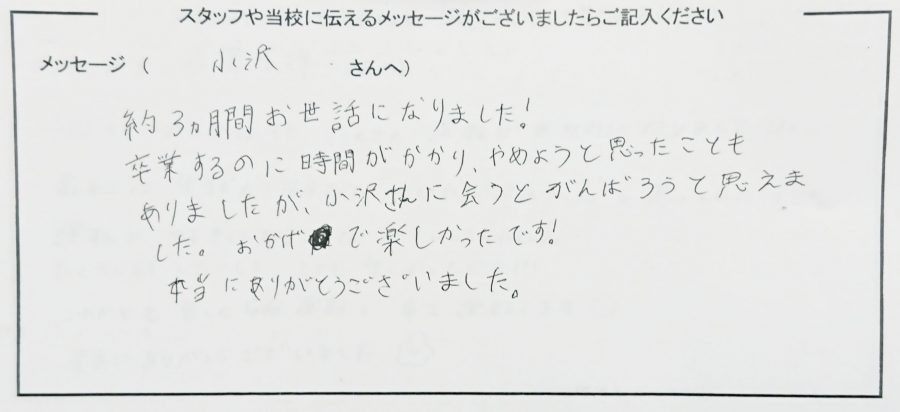 スタッフや当校に伝えるメッセージがございましたらご記入ください
メッセージ ( 小沢 さんへ)
約3ヵ月間お世話になりました!
卒業するのに時間がかかり、やめようと思ったことも
ありましたが、小沢さんに会うとがんばろうと思えま
した。おかげで楽しかったです!
本当にありがとうございました。